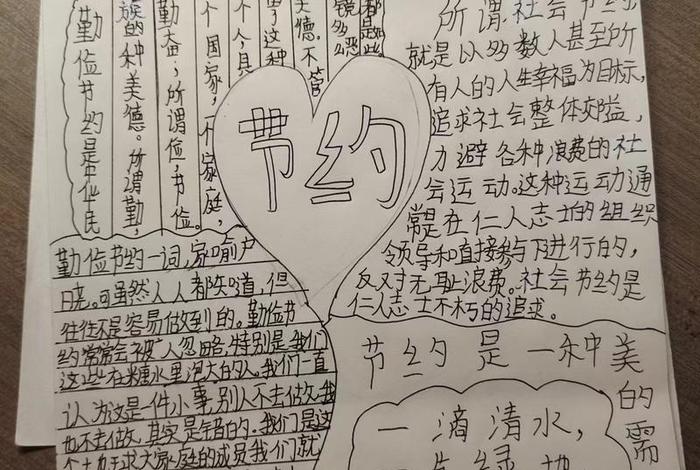 勤俭节约是中华民
族的种美德。所谓勤,
勤奋;所谓俭,节俭。
个国家,一个家庭,
个人,具
节约
所谓社会节约,
就是以多数人甚至所
有人的人生幸福为目标,
追求社会整体效益,
力避各种浪费的社
会运动。这种运动通
常是在仁人志士的组织
领导和直接参与下进行的,
反对无耻浪费。社会节约是
仁人志士不朽的追求。
勤俭节约一词,家喻户
晓。可虽然人人都知道,但
往往不是容易做到的。勤俭节
约常常会被人忽略,特别是我们
这些在糖水里泡大的人。我们一直
认为这是一件小事,别人不去做我
也不去做,其实是错的。我们是这
个大家庭的成员我们就
节约是一种美
的需
一滴清水,